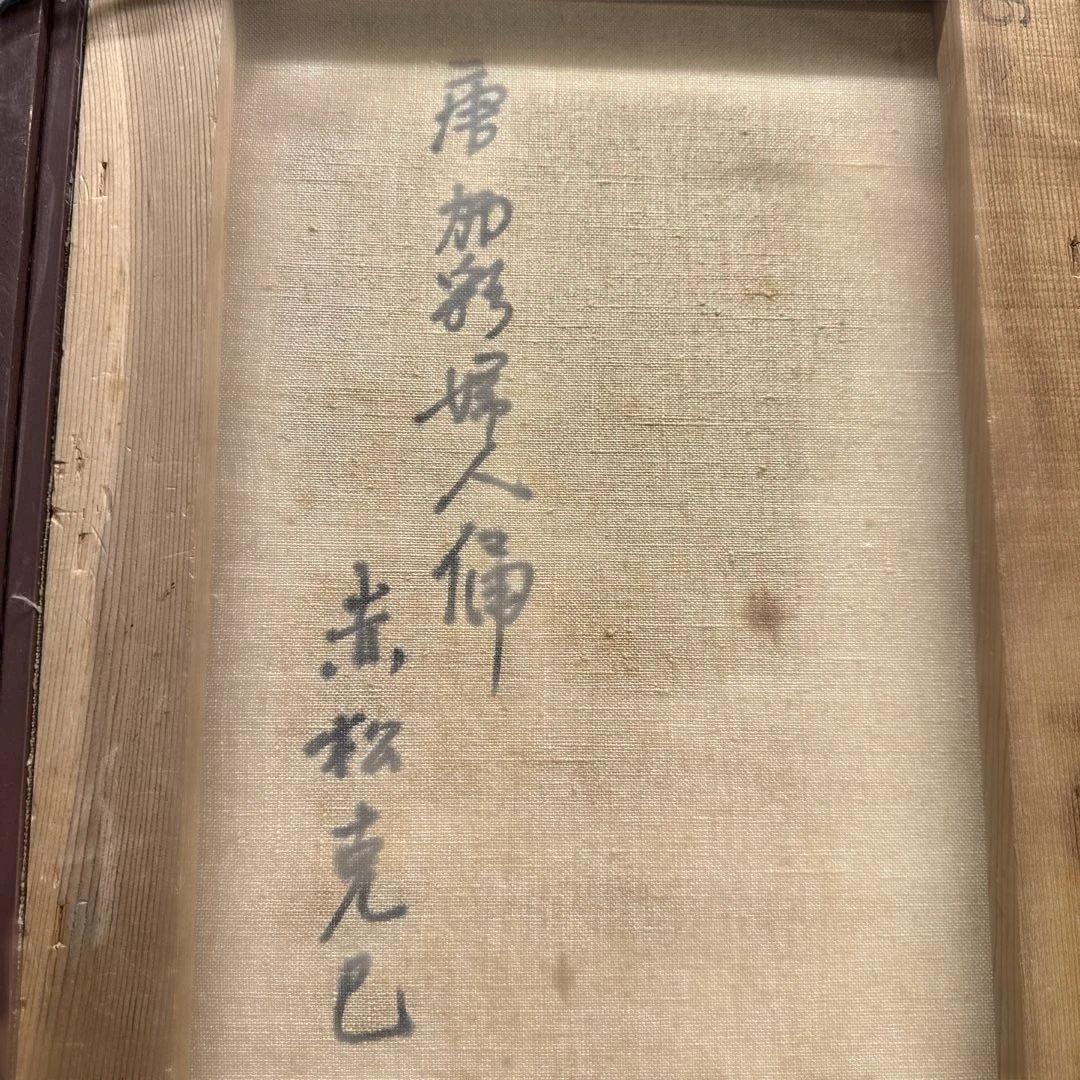 唐加彩婦人俑
赤松克巳